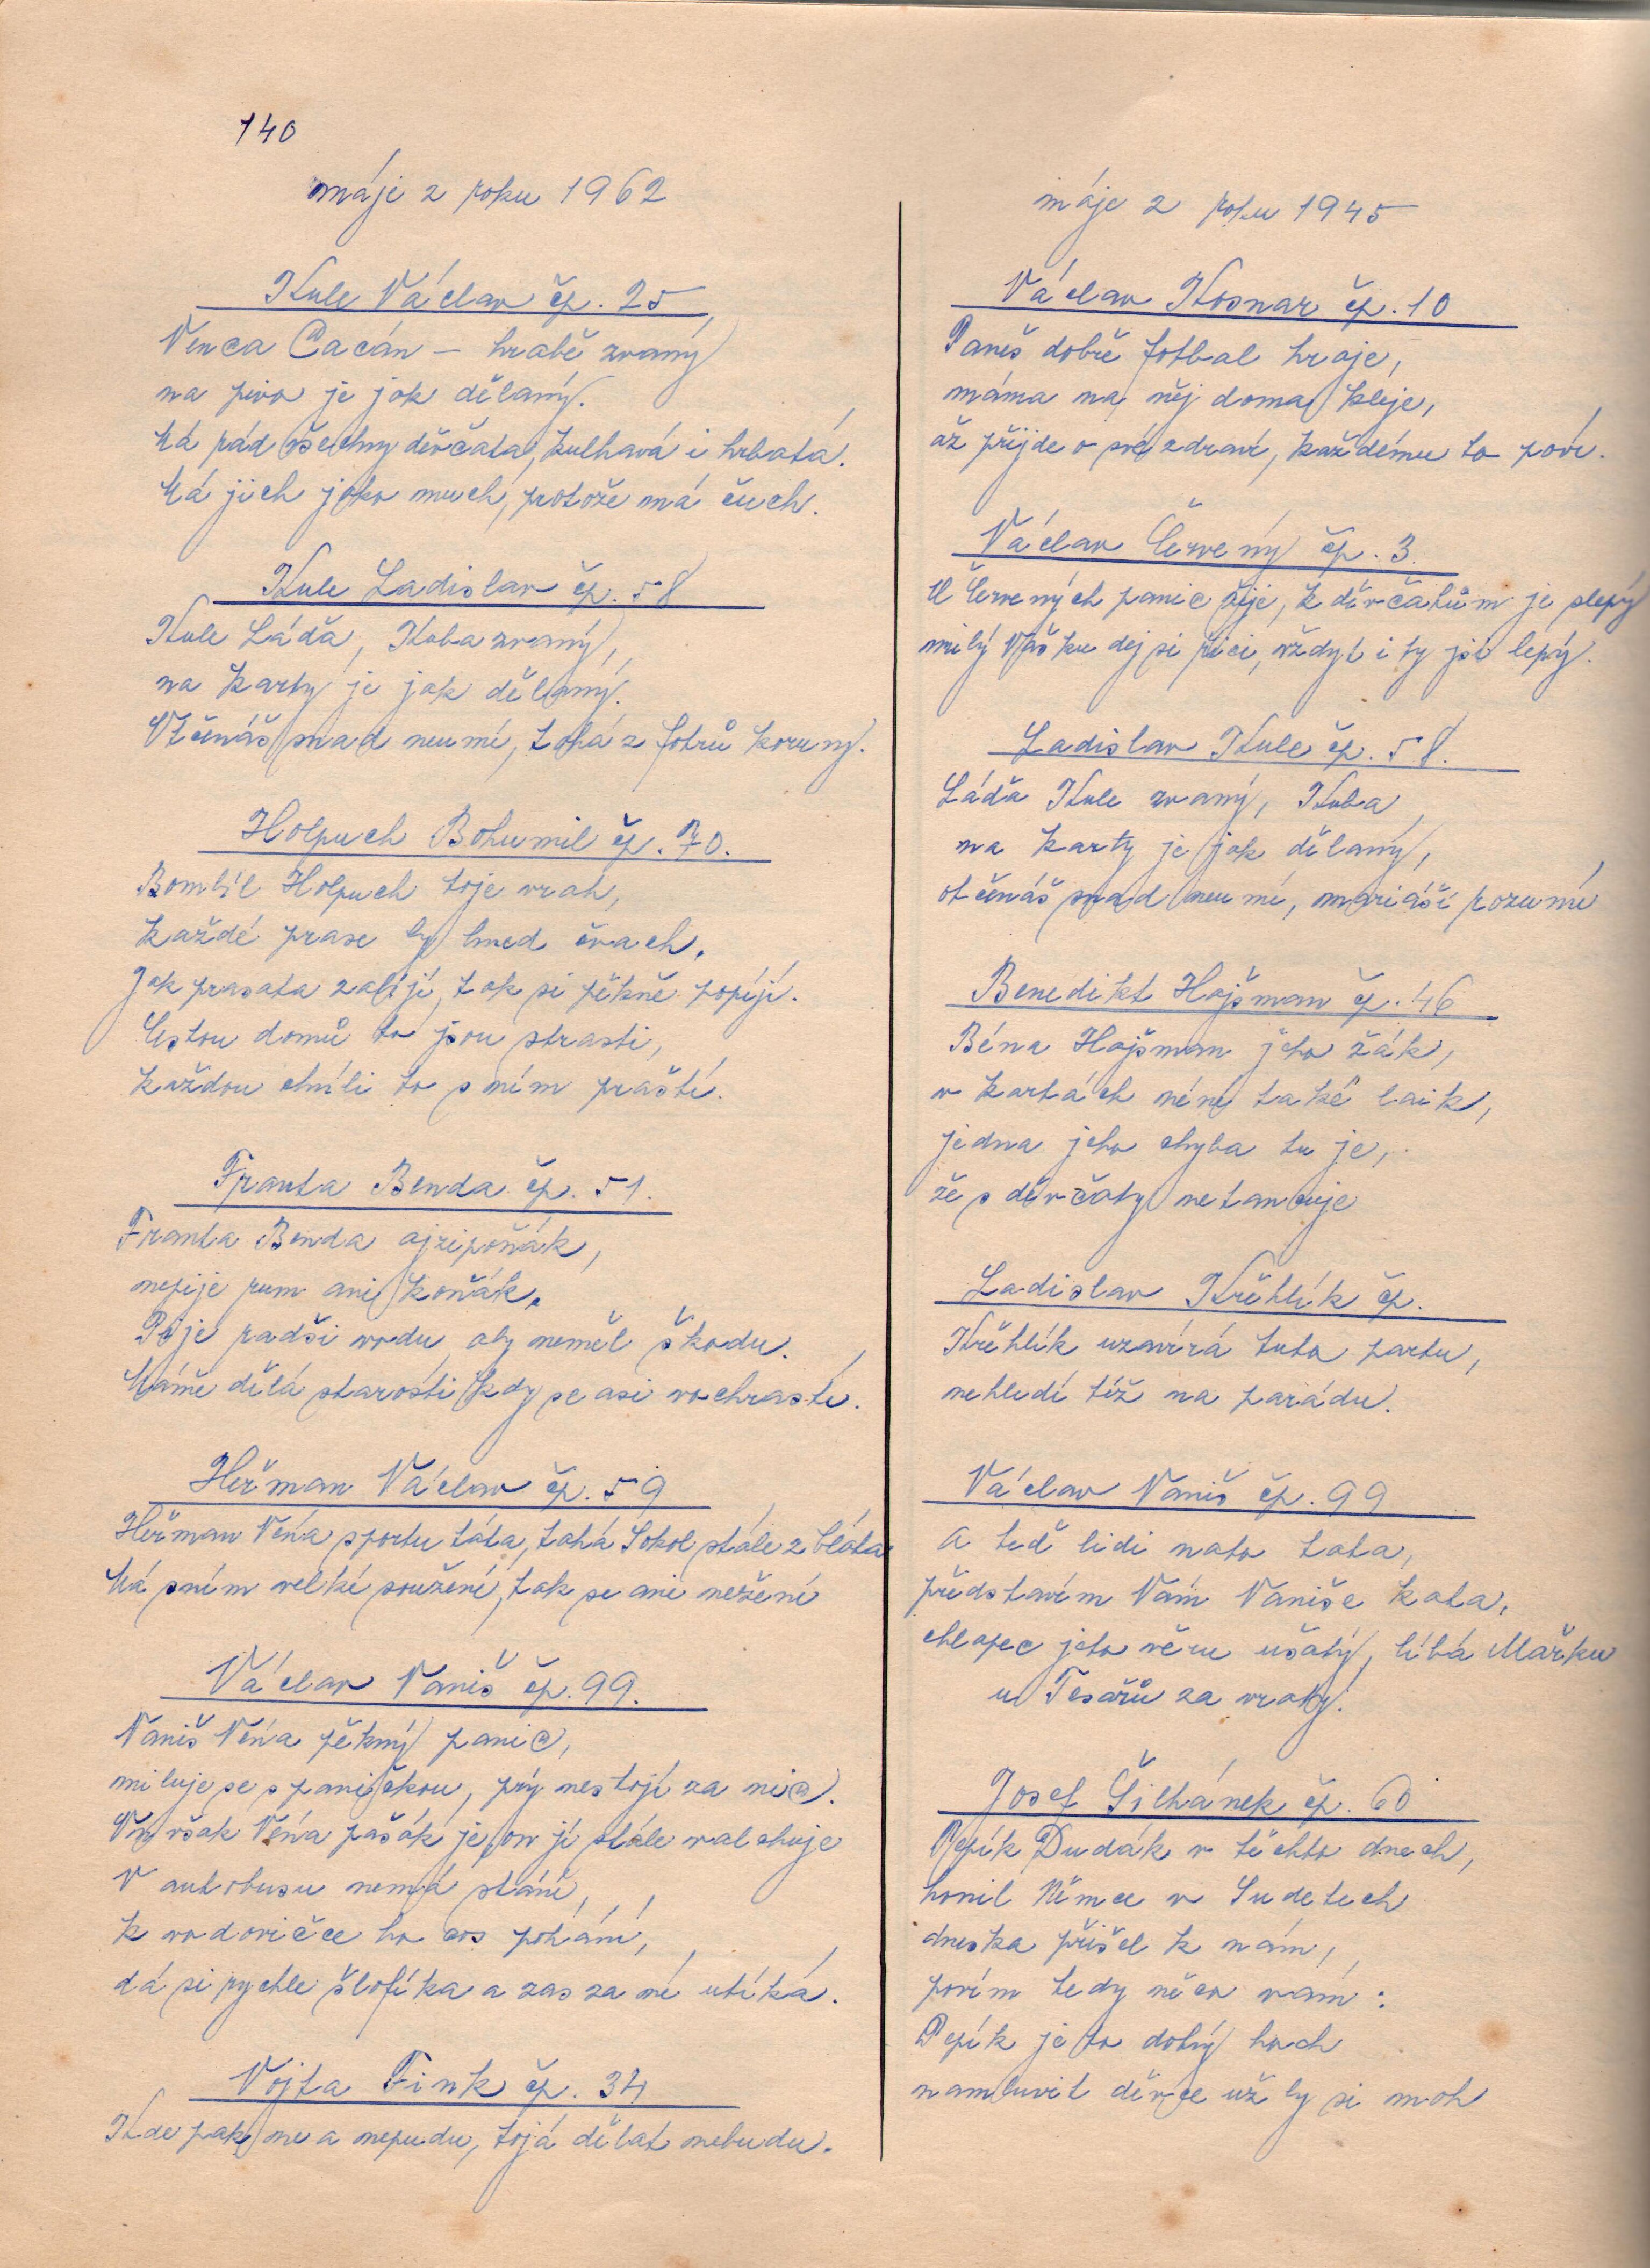 140
máje z roku 1962
Kule Václav čp. 25
Venca Cacán – hrabě zvaný
na pivo je jak dělaný.
Má rád všechny děvčata, kulhavá i hrbatá.
Má jich jako much, protože má čuch.
Kule Ladislav čp. 58
Kule Láďa, Kuba zvaný,
na karty je jak dělaný.
Otčenáš snad neumí, tahá z fotrů koruny.
Holpuch Bohumil čp. 70.
Bombil Holpuch toje vrah,
každé prase by hned čvach.
Jak prasata zabijí, tak si pěkně popíjí.
Cestou domů to jsou strasti,
každou chvíli to s ním praští.
Franta Benda čp. 51.
Franta Benda ajzipoňák,
nepije rum ani koňák.
Pije radši vodu aby neměl škodu.
Mámě dělá starosti kdy se asi vochrastí.
Heřman Václav čp. 59
Heřman Véna sportu táta, tahá Sokol stále z bláta
Má sním velké soužení, tak se ani nežení
Václav Vaniš čp. 99.
Vaniš Véna pěkný panic,
miluje se s paničkou, prý nestojí za nic.
On však Véna pašák je, on jí stále valchuje
V autobusu nemá stání,
k vodovičce ho cos pohání,
dá si rychle šlofíka a zas za ní utíká.
Vojta Fink čp. 34
Kde pak ne a nepudu, tojá dělat nebudu.
máje z roku 1945
Václav Kosnar čp. 10
Paneš dobře fotbal hraje,
máma na něj doma kleje,
až přijde o své zdraví, každému to poví.
Václav Červený čp. 3.
U Červených panic žije, k děvčatům je slepý
milý Vašku dej si říci, vždyť i ty jsi lepý.
Ladislav Kule čp. 58.
Láďa Kule zvaný, Kuba
na karty je jak dělaný,
otčenáš snad neumí, mariáši rozumí
Benedikt Hojšman čp. 46
Béna Hojšman jeho žák,
v kartách néní také laik,
jedna jeho chyba tu je,
že s děvčaty netancuje
Ladislav Křehlík čp.
Křehlík uzavírá tuto partu,
nehledí též na parádu.
Václav Vaniš čp. 99
a teď lidi nato tata,
představím Vám Vaniše kata,
chlapec jeto věru ušatý, líbá Mařku
u Tesařů za vraty.
Josef Šilhánek čp. 60
Pepík Dudák v těchto dnech,
honil Němce v Sudetech
dneska přišel k nám,
povím tedy něco vám:
Pepík je to dobrý hoch
namluvit děvče už by si moh